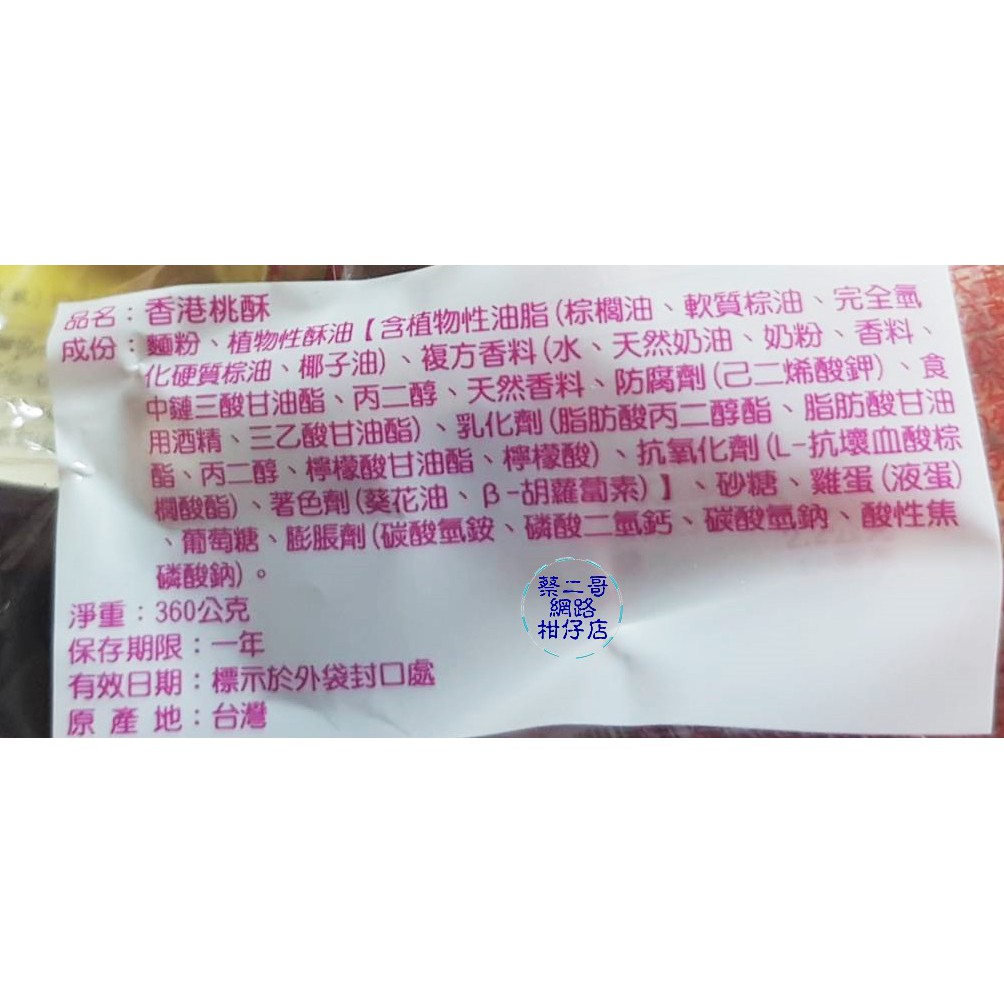 品名：香港桃酥
成份：麵粉、植物性酥油【含植物性油脂(棕櫚油、軟質棕油、完全氫
化硬質棕油、椰子油)、複方香料(水、天然奶油、奶粉、香料、
中鏈三酸甘油酯、丙二醇、天然香料、防腐劑(己二烯酸鉀)、食
用酒精、三乙酸甘油酯)、乳化劑(脂肪酸丙二醇酯、脂肪酸甘油
酯、丙二醇、檸檬酸甘油酯、檸檬酸)、抗氧化劑(L-抗壞血酸棕
櫚酸酯)、著色劑(葵花油、β-胡蘿蔔素)】、砂糖、雞蛋(液蛋)
、葡萄糖、膨脹劑(碳酸氫銨、磷酸二氫鈣、碳酸氫鈉、酸性焦
磷酸鈉)。
淨重：360公克
保存期限：一年
有效日期：標示於外袋封口處
原產地：台灣
蔡二哥
網路
柑仔店